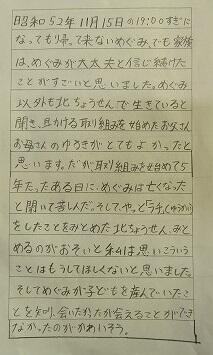 昭和52年11月15日の19:00すぎに
なっても帰って来ないめぐみ、でも家族
は、めぐみが大丈夫と信じ続けた
ことがすごいと思いました。めぐみ
以外も北ちょうせんで生きていると
聞き、呼びかける取り組みを始めたお父さん
お母さんのゆうきがとてもよかったと
思います。だが取り組みを始めて5
年たったある日に、めぐみは亡くなった
と聞いて苦しんだ。そして、やっとラチ(ゆうかい)
をしたことをみとめた北ちょうせん、みと
めるのがおそいと私は思いこういう
ことはもうしてほしくないと思いました。
そしてめぐみが子どもを産んでいたこ
とを知り、会いたかったが会えることができ
なかったのがかわいそう。